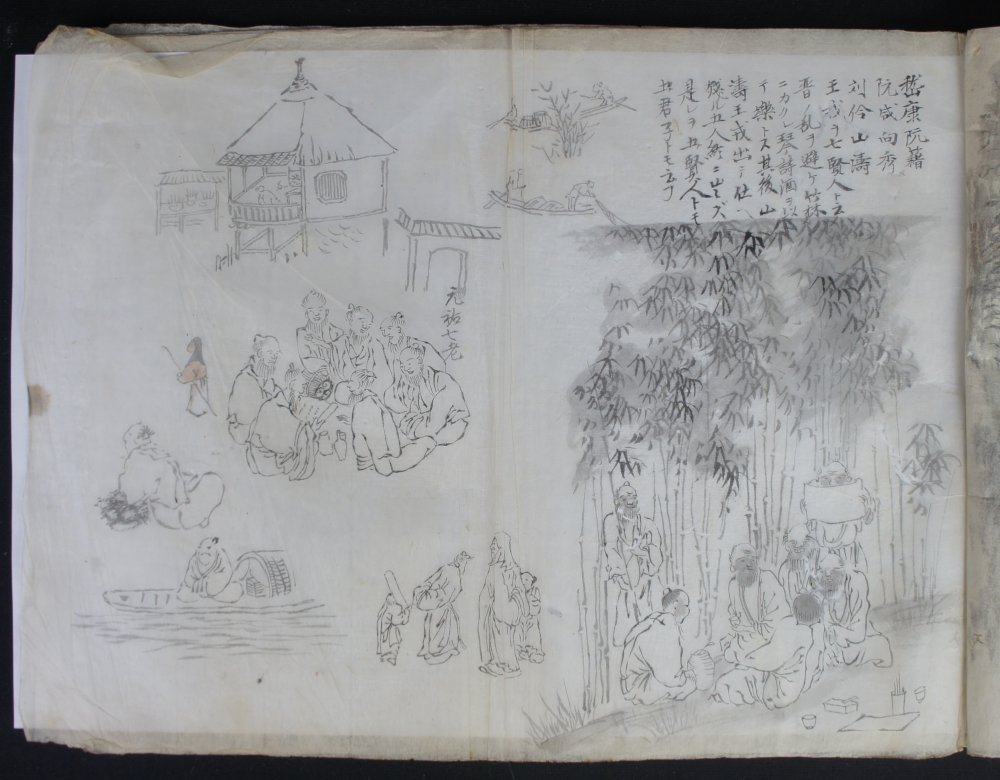 嵆康阮籍
阮咸向秀
刘伶山濤
王戎ヲ七賢人ト云
晋ノ乱ヲ避ケ竹林
ニカクレ琴詩酒ヲ以
テ樂トス其後山
濤王戎出テ仕ヘ
残ル五人終ニ出ズ
是レヲ五賢人トモ
五君子トモ云フ
元祐七老